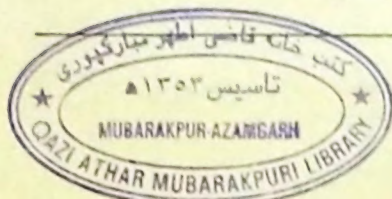 کتب خانہ قاضی اطہر مبارکپوری
تاسیس ۱۳۵۳ھ
MUBARAKPUR-AZAMGARH
QAZI ATHAR MUBARAKPURI LIBRARY